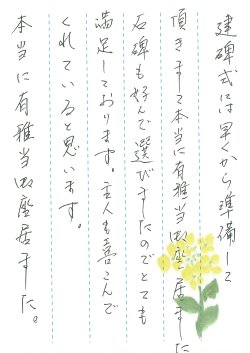 建碑式には早くから準備して
頂きまして本当に有雅当囬座居ました
石碑も好んで選びましたのでとても
満足しております。主人も喜こんで
くれていると思います。
本当に有雅当囬座居ました。